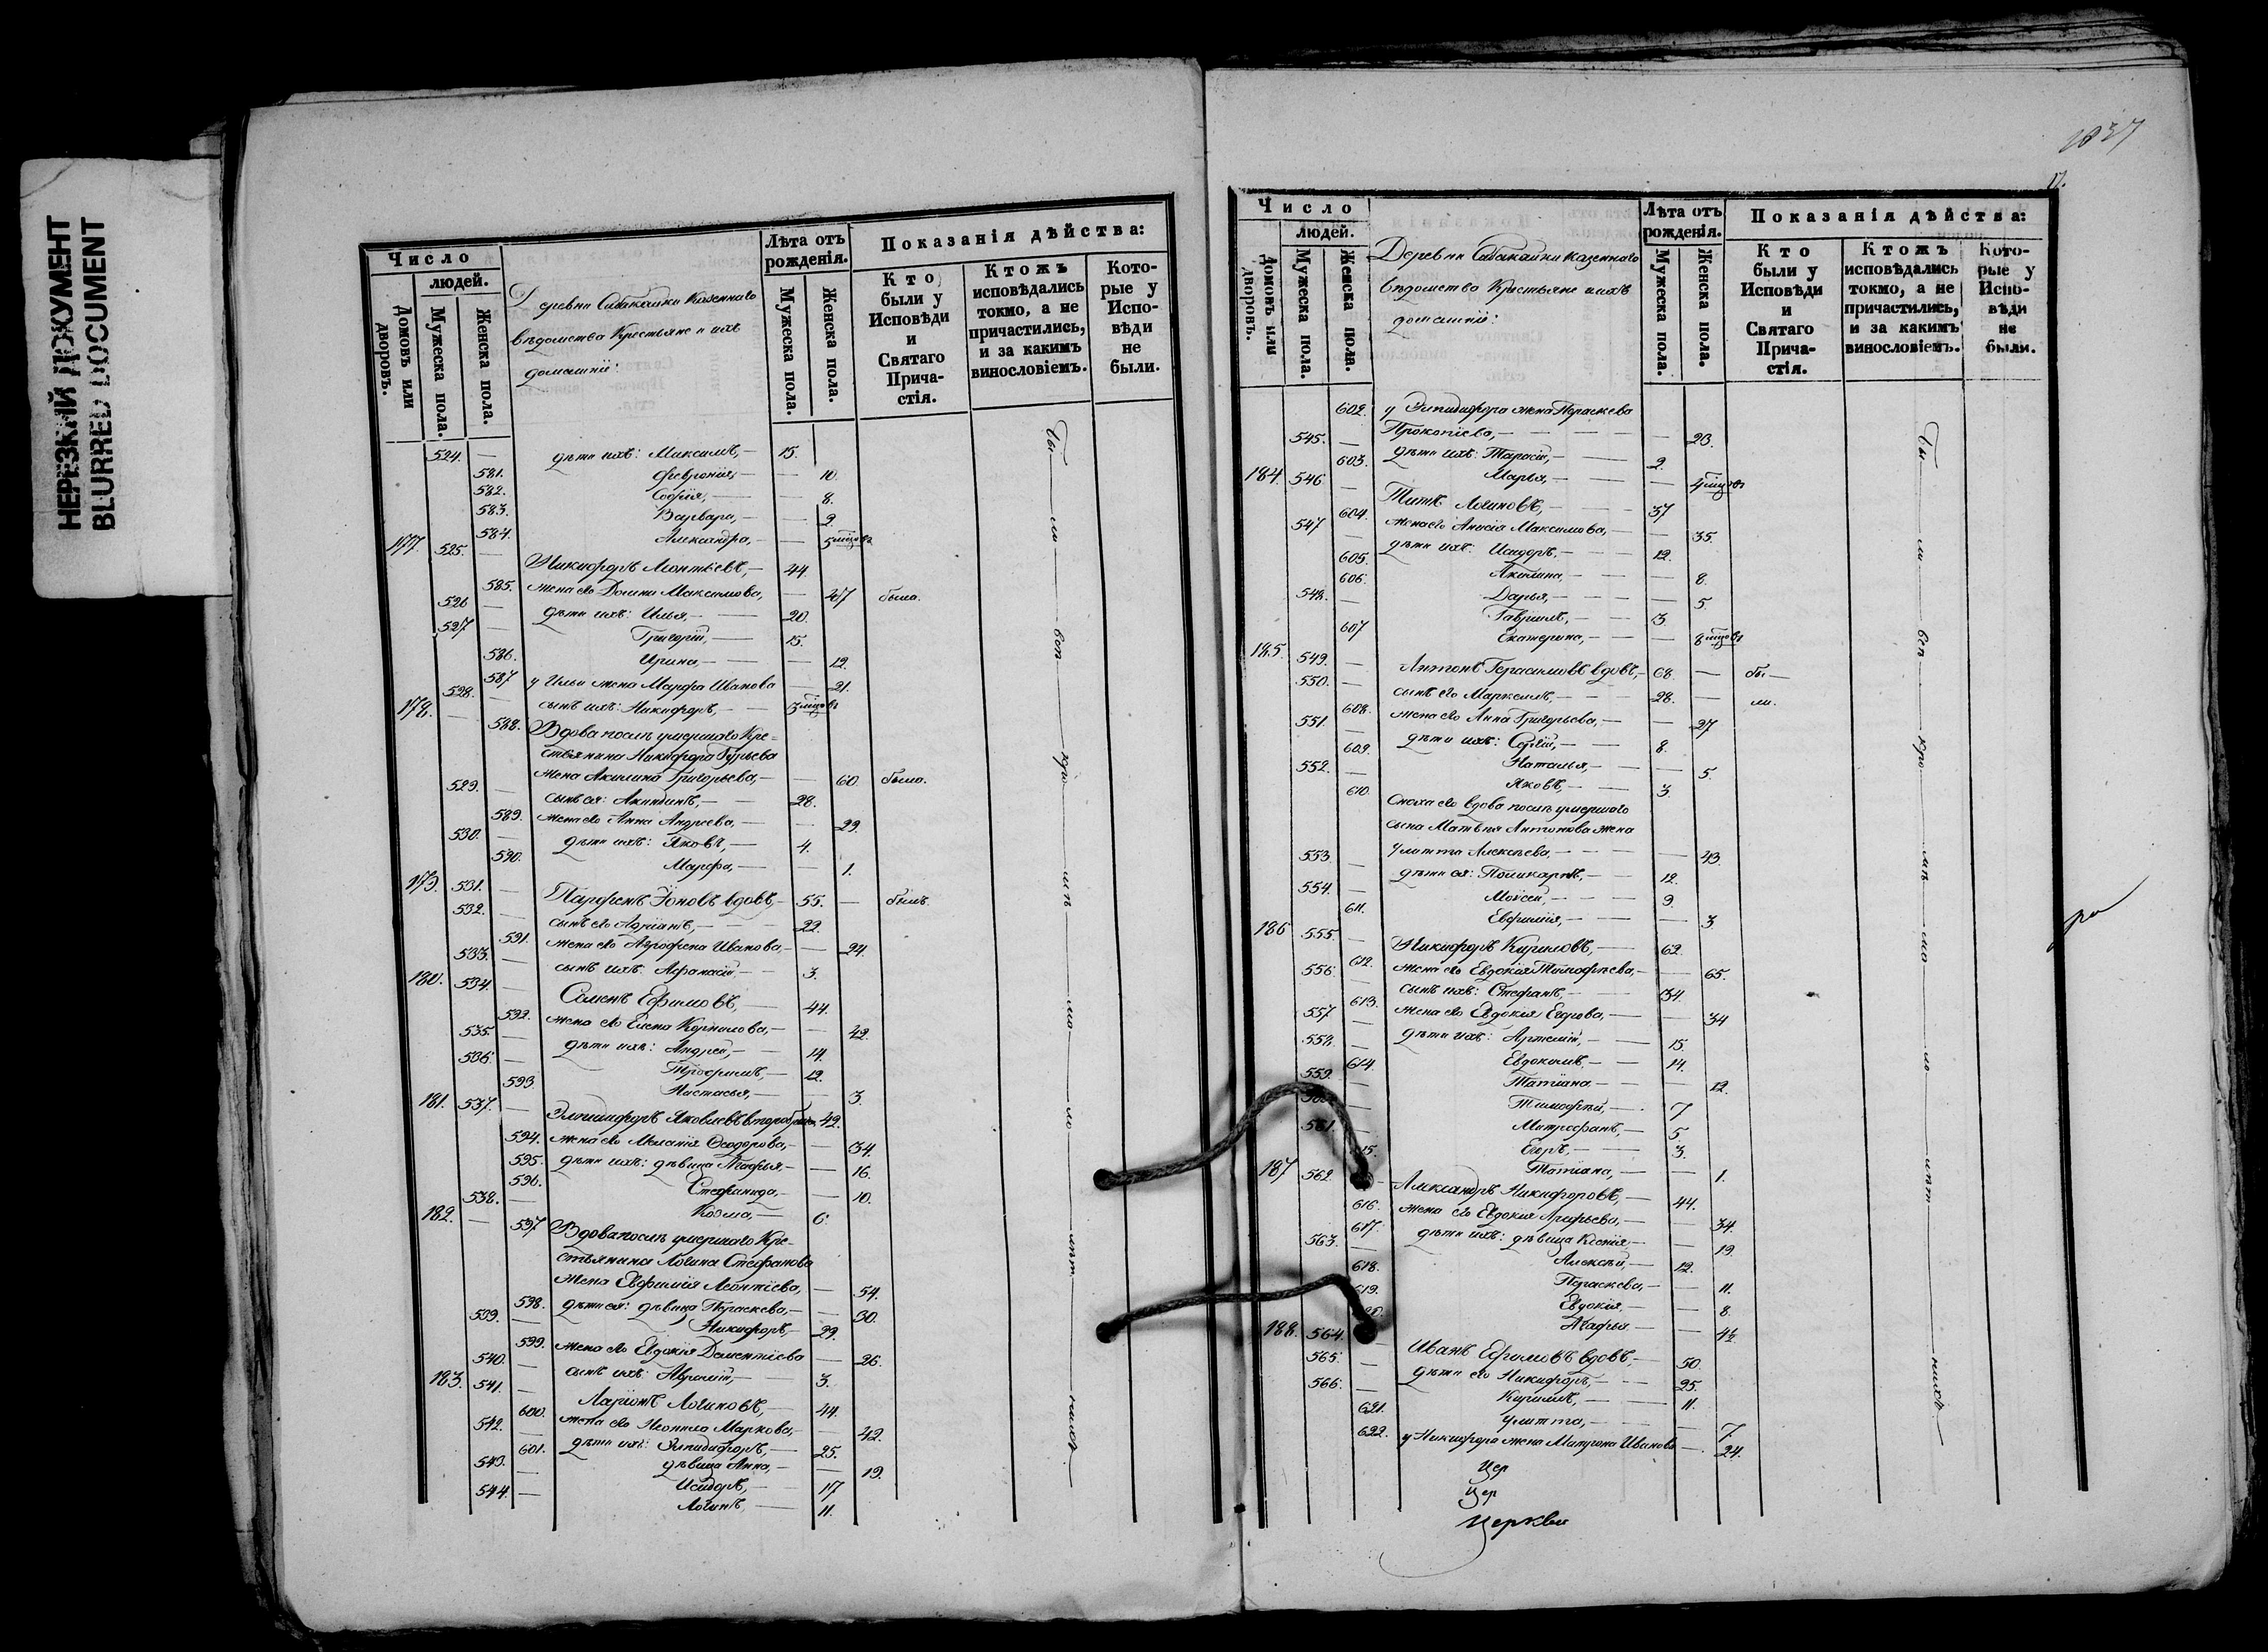 НЕРЕЗКИЙ ДОКУМЕНТ
BLURRED DOCUMENT
Число
людей.
Домовъ или дворовъ.
Мужеска пола.
Женска пола.
Деревни Сабакайки Казеннаго
вѣдомства Крестьяне и ихъ
домашніе:
Лѣта отъ рожденія.
Мужеска пола.
Женска пола.
Показанія дѣйства:
Кто были у Исповѣди и Святаго Причастія.
Ктожъ исповѣдались токмо, а не причастились, и за какимъ винословіемъ.
Которые у Исповѣди не были.
524. — дѣти ихъ: Максимъ, — 15.
581. Феврония, — 10.
582. Софія, — 8.
583. Варвара, — 2.
584. Александра, — 5 мѣсцовъ
177 525. — Никифоръ Леонтьевъ, — 44.
585. жена его Домна Максимова, — 47 была.
526 — дѣти ихъ: Илья, — 20.
527 — Григорій, — 15.
586. Ирина, — 12.
587 у Ильи жена Марфа Иванова — 21.
528. — сынъ ихъ: Никифоръ, — 3 мѣсцовъ
178. — 588. Вдова послѣ умершаго Кре-
стьянина Никифора Гурьева
жена Акилина Григорьева, — 60 была.
529. — сынъ ея: Акиндинъ, — 28.
589. жена его Анна Андреева, — 29.
530. — дѣти ихъ: Яковъ, — 4.
590. Марфа, — 1.
179. 531. — Парфенъ Іоновъ вдовъ, — 55. — былъ.
532. — сынъ его Адріанъ, — 22.
591. жена его Аграфена Иванова, — 24.
533. — сынъ ихъ: Афанасій, — 3.
180. 534. — Семенъ Ефимовъ, — 44.
592. жена его Елена Корнилова, — 42.
535. — дѣти ихъ: Андрей, — 14.
536. — Трофимъ, — 12.
593. Настасья, — 3.
181. 537. — Яковлевъ второбрачн. 42.
594. жена его Меланія Ѳеодорова, — 34.
595. дѣти ихъ: дѣвица Агафья, — 16.
596. Стефанида, — 10.
538. — Козма, — 6.
182. — 597 Вдова послѣ умершаго Кре-
стьянина Логина Стефанова
жена Евфимія Леонтіева, — 54.
598. дѣти ея: дѣвица Параскева, — 30.
539. — Никифоръ, — 29.
599. жена его Евдокія Дементіева — 26.
540. — сынъ ихъ: Аврамій, — 3.
183. 541. — Ларіонъ Логиновъ, — 44.
600. жена его Неонила Маркова, — 42.
542. — дѣти ихъ: Елпидифоръ, — 25.
601. дѣвица Анна, — 19.
543. — Исидоръ, — 17
544. — Логинъ, — 11.
1037
17.
Число
людей.
Домовъ или дворовъ.
Мужеска пола.
Женска пола.
Деревни Сабакайки казеннаго
вѣдомства Крестьяне и ихъ
домашніе:
Лѣта отъ рожденія.
Мужеска пола.
Женска пола.
Показанія дѣйства:
Кто были у Исповѣди и Святаго Причастія.
Ктожъ исповѣдались токмо, а не причастились, и за какимъ винословіемъ.
Которые у Исповѣди не были.
602. у Елпидифора жена Параскева
Прокопіева, — 23.
545. — дѣти ихъ: Тарасій, — 2.
603. Марья, — 4 мѣсцовъ
184. 546 — Титъ Логиновъ, — 37
604. жена его Анисія Максимова, — 35.
547 — дѣти ихъ: Исидоръ, — 12.
605. Акилина, — 8.
606. Дарья, — 5.
548. — Гавріилъ, — 3.
607 Екатерина, — 8 мѣсцовъ
185. 549. — Антонъ Герасимовъ вдовъ, — 68. — бы —
550. — сынъ его Маркелъ, — 28. — ли.
608. жена его Анна Григорьева, — 27
551. — дѣти ихъ: Сергій, — 8.
609. Наталья, — 5.
552. — Яковъ, — 3.
610. Сноха его вдова послѣ умершаго
сына Матвѣя Антонова жена
Улитта Алексѣева, — 43.
553. — дѣти ея: Поликарпъ, — 12.
554. — Моисей, — 9.
611. Евфимія, — 3
186 555. — Никифоръ Кириловъ, — 62.
612. жена его Евдокія Тимофѣева, — 65.
556. сынъ ихъ: Стефанъ, — 34.
613. жена его Евдокія Егорова, — 34
557 — дѣти ихъ: Артемій, — 15.
558. — Евдокимъ, — 14.
614. Татіана — 12.
559. — Тимофѣй, — 7
— Митрофанъ, — 5
561. — Егоръ, — 3.
15. Татіана, — 1.
187 562. — Александръ Никифоровъ, — 44.
616. жена его Евдокія Арефьева, — 34.
617. дѣти ихъ: дѣвица Ксенія, — 19.
563. — Алексѣй, — 12.
618. Параскева, — 11.
619. Евдокія, — 8.
Агафья — 4½
188. 564. — Иванъ Ефимовъ вдовъ, — 50.
565. — дѣти его Никифоръ, — 25.
566. — Кирилъ, — 11.
621. Улитта, — 7.
622. у Никифора жена Матрона Иванова — 24.
Цер
Цер
Церкви